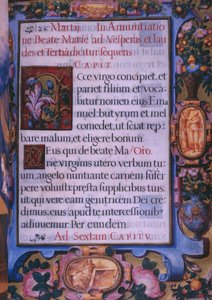 25. Martij. In Annuntiatio
ne Beate Marie ad Vesperas et lau
des et Tertia dicitur sequens
CAPIT.
Ecce virgo concipiet, et
pariet filium et voca
bitur nomen eius Em
manuel butyrum et mel
comedet, ut sciat repro
bare malum, et eligere bonum.
Deus qui de beate Ma Oro.
rie virginis utero verbum tu
um, angelo nuntiante carnem susci
pere voluisti: presta supplicibus tuis:
ut qui vere eam genitricem Dei cre
dimus, eius apud te intercessionib9
adiuvemur. Per eundem.
Ad Sextam CAPITV.